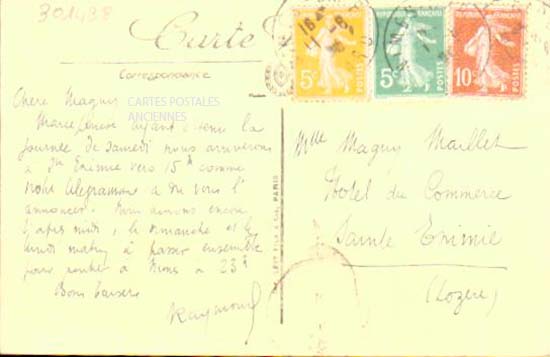 301438
Carte
Correspondance
CARTES POSTALES
ANCIENNES
Chere Maguy
ayant obtenu la
journée de samedi nous arriverons
à Ste Enimie vers 15h comme
notre télégramme a du vous l'
annoncer. Nous aurons encore
l'après midi, le dimanche et le
lundi matin à passer ensemble
pour rentrer à à 23h
Bons baisers
Raymond
PARIS
5c POSTES
5c POSTES
10c POSTES
Mlle Maguy Maillet
Hotel du Commerce
Sainte Enimie
(Lozère)